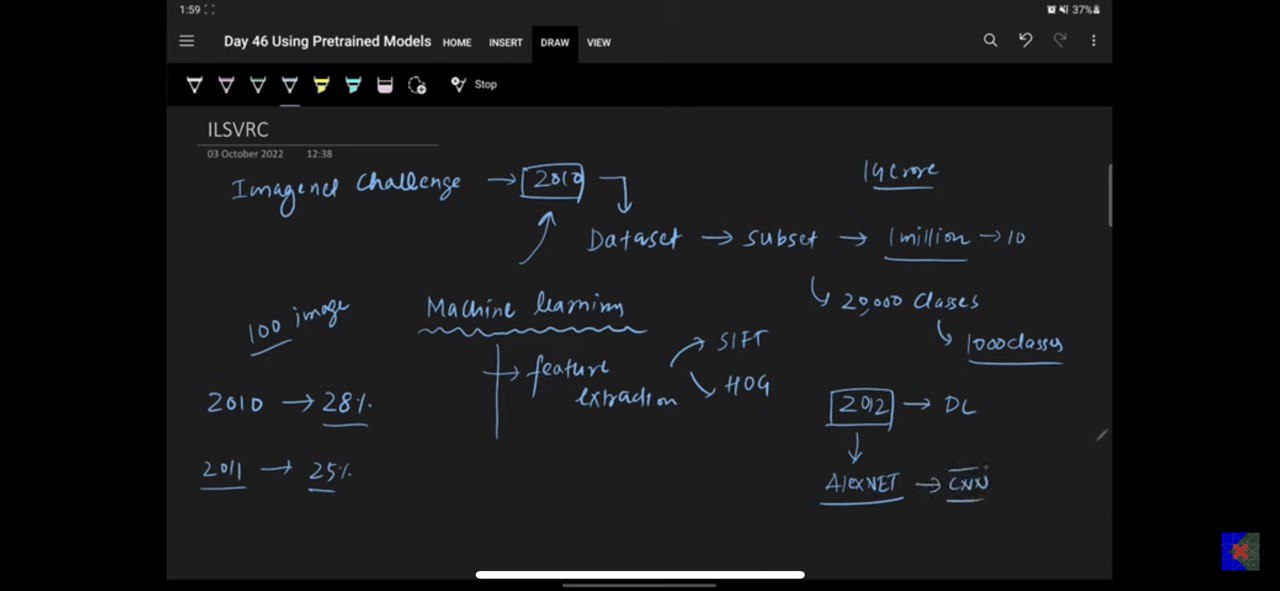 1:59
37%
Day 46 Using Pretrained Models HOME INSERT DRAW VIEW
Stop
ILSVRC
03 October 2022 12:38
Imagenet Challenge → 2010
14 crore
Dataset → subset → 1 million → 10
20,000 classes
1000 classes
100 image
Machine learning
feature extraction
SIFT
HOG
2010 → 28%
2011 → 25%
2012 → DL
AlexNET → CNN